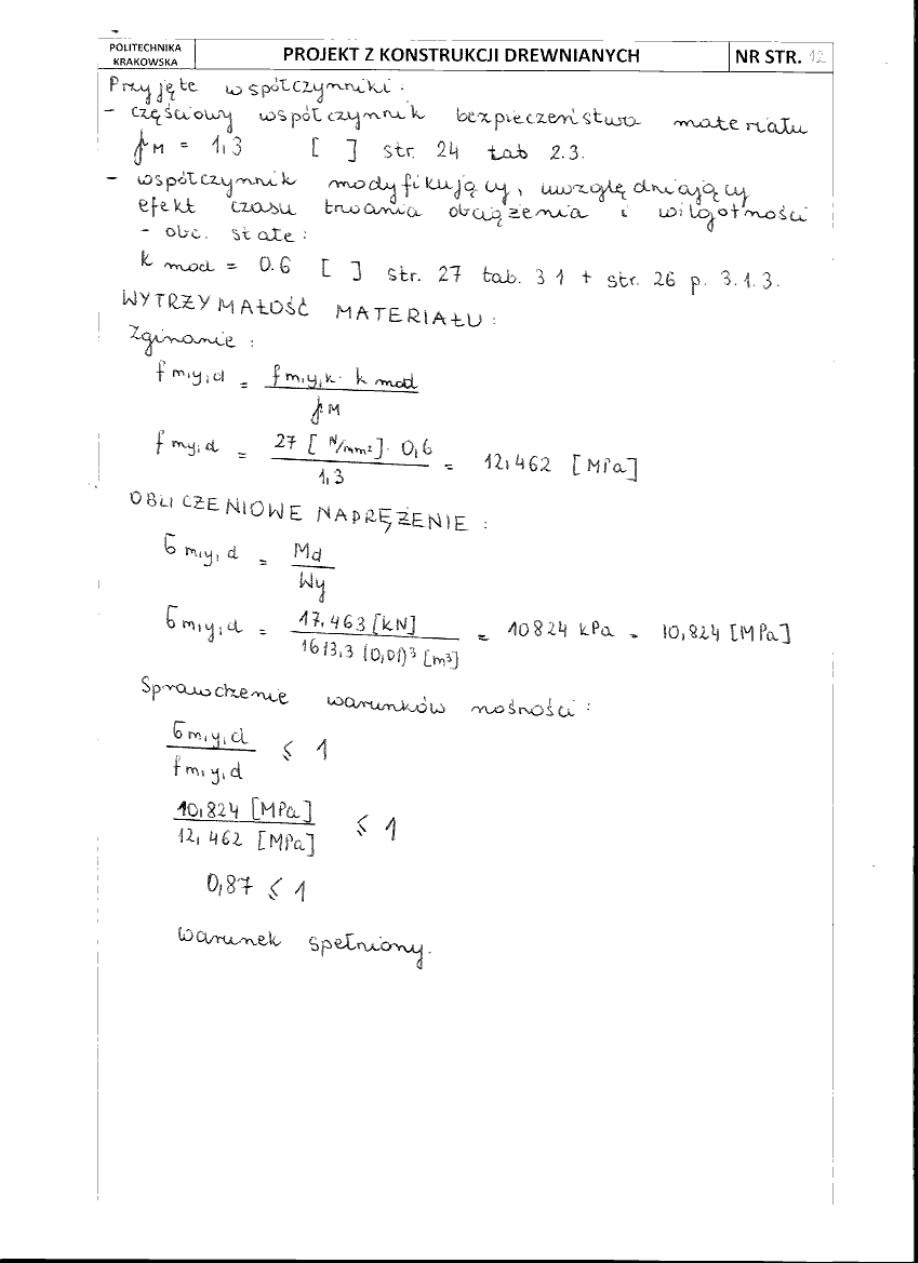 POLITECHNIKA
KRAKOWSKA
PROJEKT Z KONSTRUKCJI DREWNIANYCH
NR STR. 12
Przyjęte współczynniki:
- częściowy współczynnik bezpieczeństwa materiału
γM = 1,3 [ ] str 24 tab 2.3.
- współczynnik modyfikujący, uwzględniający
efekt czasu trwania obciążenia i wilgotności
- obc. stałe:
k mod = 0.6 [ ] str. 27 tab. 3 1 + str. 26 p. 3.1.3.
WYTRZYMAŁOŚĆ MATERIAŁU:
Zginanie:
f m,y,d = f m,y,k · k mod / γM
f my,d = 27 [N/mm²] · 0,6 / 1,3 = 12,462 [MPa]
OBLICZENIOWE NAPRĘŻENIE:
σ m,y,d = Md / Wy
σ m,y,d = 17,463 [kN] / 1613,3 (0,01)³ [m³] = 10824 kPa = 10,824 [MPa]
Sprawdzenie warunków nośności:
σ m,y,d / f m,y,d ≤ 1
10,824 [MPa] / 12,462 [MPa] ≤ 1
0,87 ≤ 1
warunek spełniony.